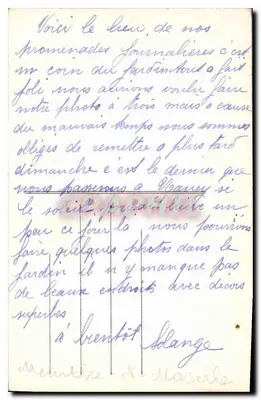 Voici le lieu de nos
promenades journalières c'est
un coin du jardin tout a fait
joli nous avions voulu faire
notre photo a trois mais a cause
du mauvais temps nous sommes
obligés de remettre a plus tard
dimanche c'est le dernier que
nous passerons a Nancy si
le un
peu ce jour la nous pourrions
faire quelques photos dans le
jardin il n'y manque pas
de beaux endroits avec décors
superbes
à bientôt Solange